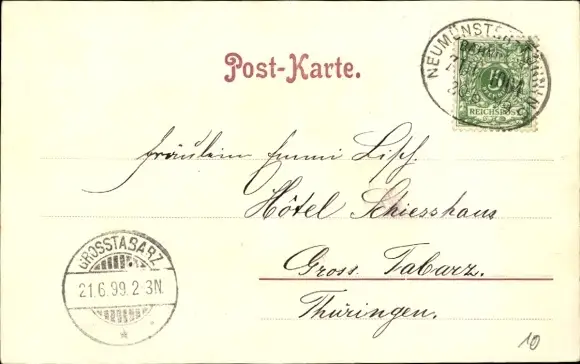 Post-Karte.
NEUMÜNSTER
5
REICHSPOST
Fräulein Emmi Lisch.
Hôtel Schiesshaus
Gross. Tabarz.
Thüringen.
GROSSTABARZ
21.6.99.2-3N
*
10